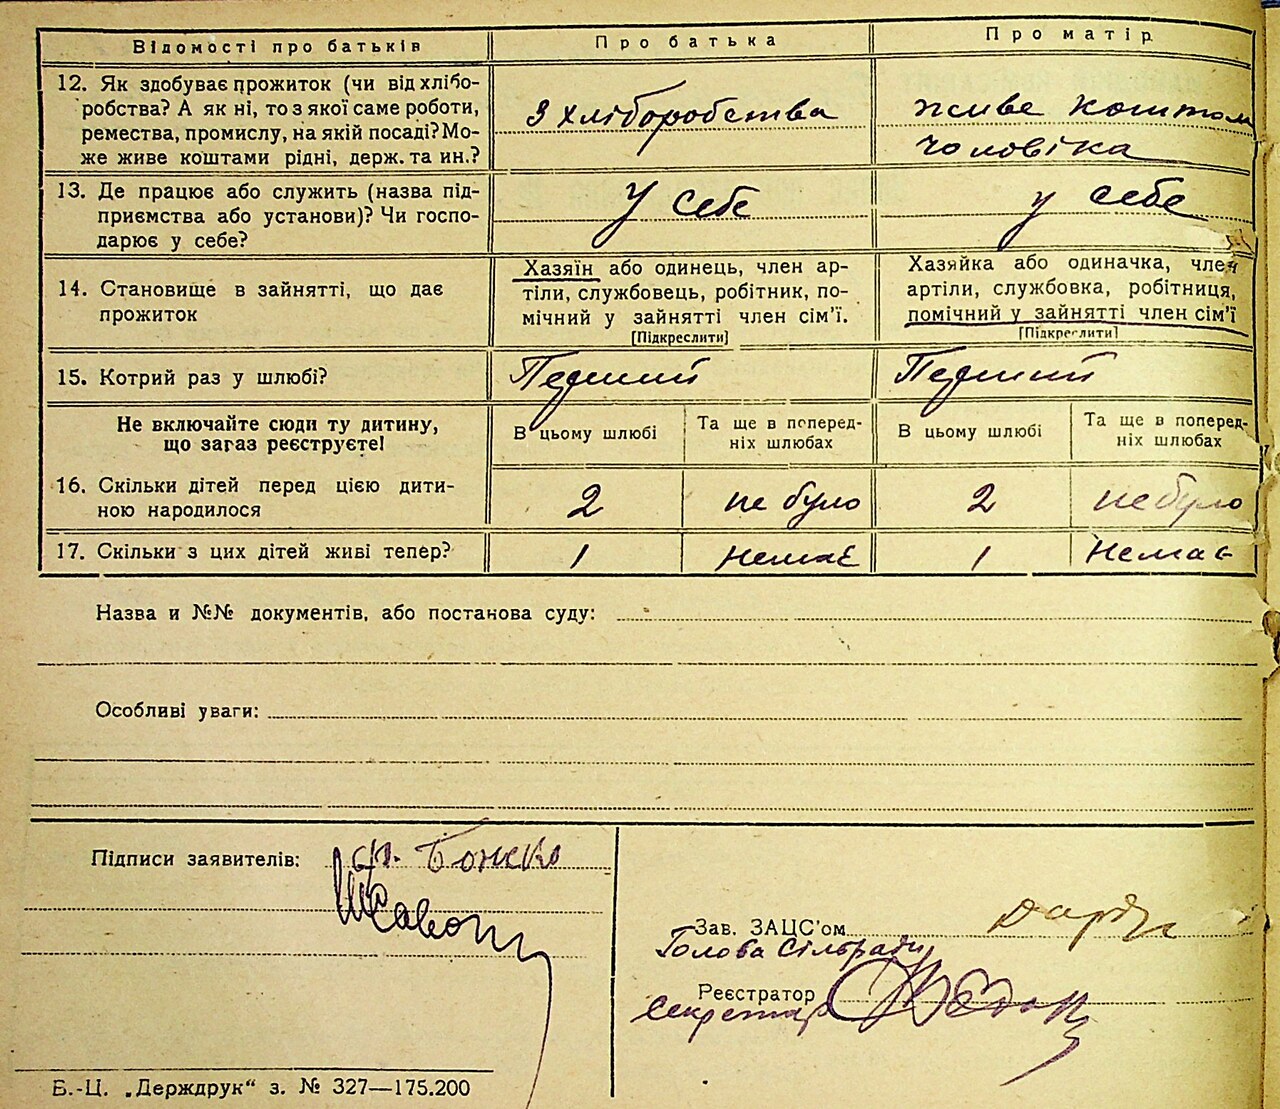 Відомості про батьків
Про батька
Про матір
12. Як здобуває прожиток (чи від хлібо-
робства? А як ні, то з якої саме роботи,
ремества, промислу, на якій посаді? Мо-
же живе коштами рідні, держ. та ин.?
З хліборобства
живе коштом
чоловіка
13. Де працює або служить (назва під-
приємства або установи)? Чи госпо-
дарює у себе?
У себе
у себе
14. Становище в зайнятті, що дає
прожиток
Хазяїн або одинець, член ар-
тіли, службовець, робітник, по-
мічний у зайнятті член сім’ї.
[Підкреслити]
Хазяйка або одиначка, член
артіли, службовка, робітниця,
помічний у зайнятті член сім’ї
[Підкреслити]
15. Котрий раз у шлюбі?
Перший
Перший
Не включайте сюди ту дитину,
що загаз реєструєте!
В цьому шлюбі
Та ще в поперед-
ніх шлюбах
В цьому шлюбі
Та ще в поперед-
ніх шлюбах
16. Скільки дітей перед цією дити-
ною народилося
2
не було
2
не було
17. Скільки з цих дітей живі тепер?
1
немає
1
немає
Назва и №№ документів, або постанова суду:
Особливі уваги:
Підписи заявителів:
Зав. ЗАЦС’ом
Голова Сільради
Реєстратор
Секретар
Б.-Ц. „Держдрук“ з. № 327—175.200